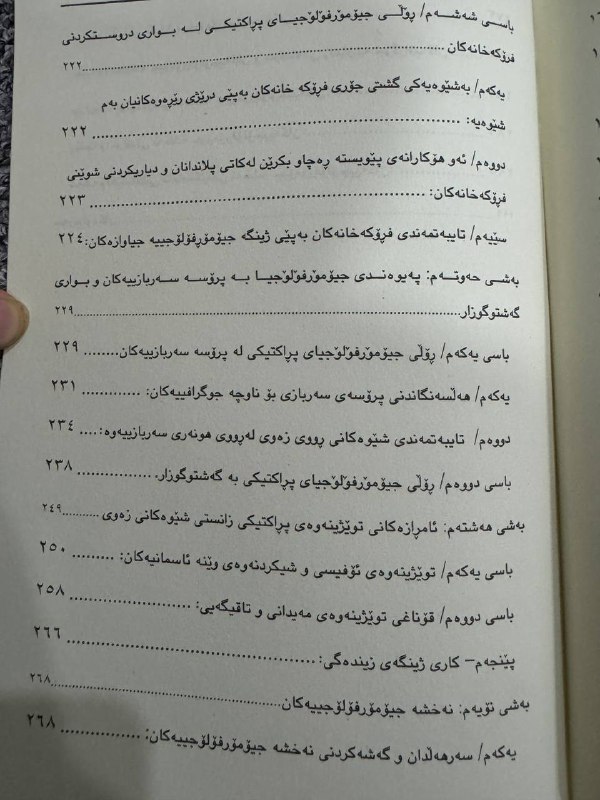 باسی شەشەم/ ڕۆڵی جیۆمۆرفۆلۆجیای پڕاکتیکی لە بواری دروستکردنی
فڕۆکەخانەکان ........................ ٢٢٢
یەکەم/ بەشێوەیەکی گشتی جۆری فڕۆکە خانەکان بەپێی درێژی ڕێڕەوەکانیان بەم
شێوەیە: ........................ ٢٢٢
دووەم/ ئەو هۆکارانەی پێویستە ڕەچاو بکرێن لەکاتی پلاندانان و دیاریکردنی شوێنی
فڕۆکەخانەکان: ........................ ٢٢٣
سێیەم/ تایبەتمەندی فڕۆکەخانەکان بەپێی ژینگە جیۆمۆڕفۆلۆجییە جیاوازەکان: ٢٢٤
بەشی حەوتەم: پەیوەندی جیۆمۆرفۆلۆجیا بە پرۆسە سەربازییەکان و بواری
گەشتوگوزار ........................ ٢٢٩
باسی یەکەم/ ڕۆڵی جیۆمۆرفۆلۆجیای پڕاکتیکی لە پرۆسە سەربازییەکان ........ ٢٢٩
یەکەم/ هەڵسەنگاندنی پرۆسەی سەربازی بۆ ناوچە جوگرافییەکان: ............. ٢٣١
دووەم/ تایبەتمەندی شێوەکانی ڕووی زەوی لەڕووی هونەری سەربازییەوە: .... ٢٣٤
باسی دووەم/ ڕۆڵی جیۆمۆرفۆلۆجیای پڕاکتیکی بە گەشتوگوزار. ................ ٢٣٨
بەشی هەشتەم: ئامرازەکانی توێژینەوەی پڕاکتیکی زانستی شێوەکانی زەوی .......... ٢٤٩
باسی یەکەم/ توێژینەوەی ئۆفیسی و شیکردنەوەی وێنە ئاسمانیەکان: ......... ٢٥٠
باسی دووەم/ قۆناغی توێژینەوەی مەیدانی و تاقیگەیی: ........................ ٢٥٨
پێنجەم– کاری ژینگەی زیندەگی: ........................ ٢٦٦
بەشی نۆیەم: نەخشە جیۆمۆرفۆلۆجییەکان ........................ ٢٦٨
یەکەم/ سەرهەڵدان و گەشەکردنی نەخشە جیۆمۆرفۆلۆجییەکان: ................ ٢٦٨